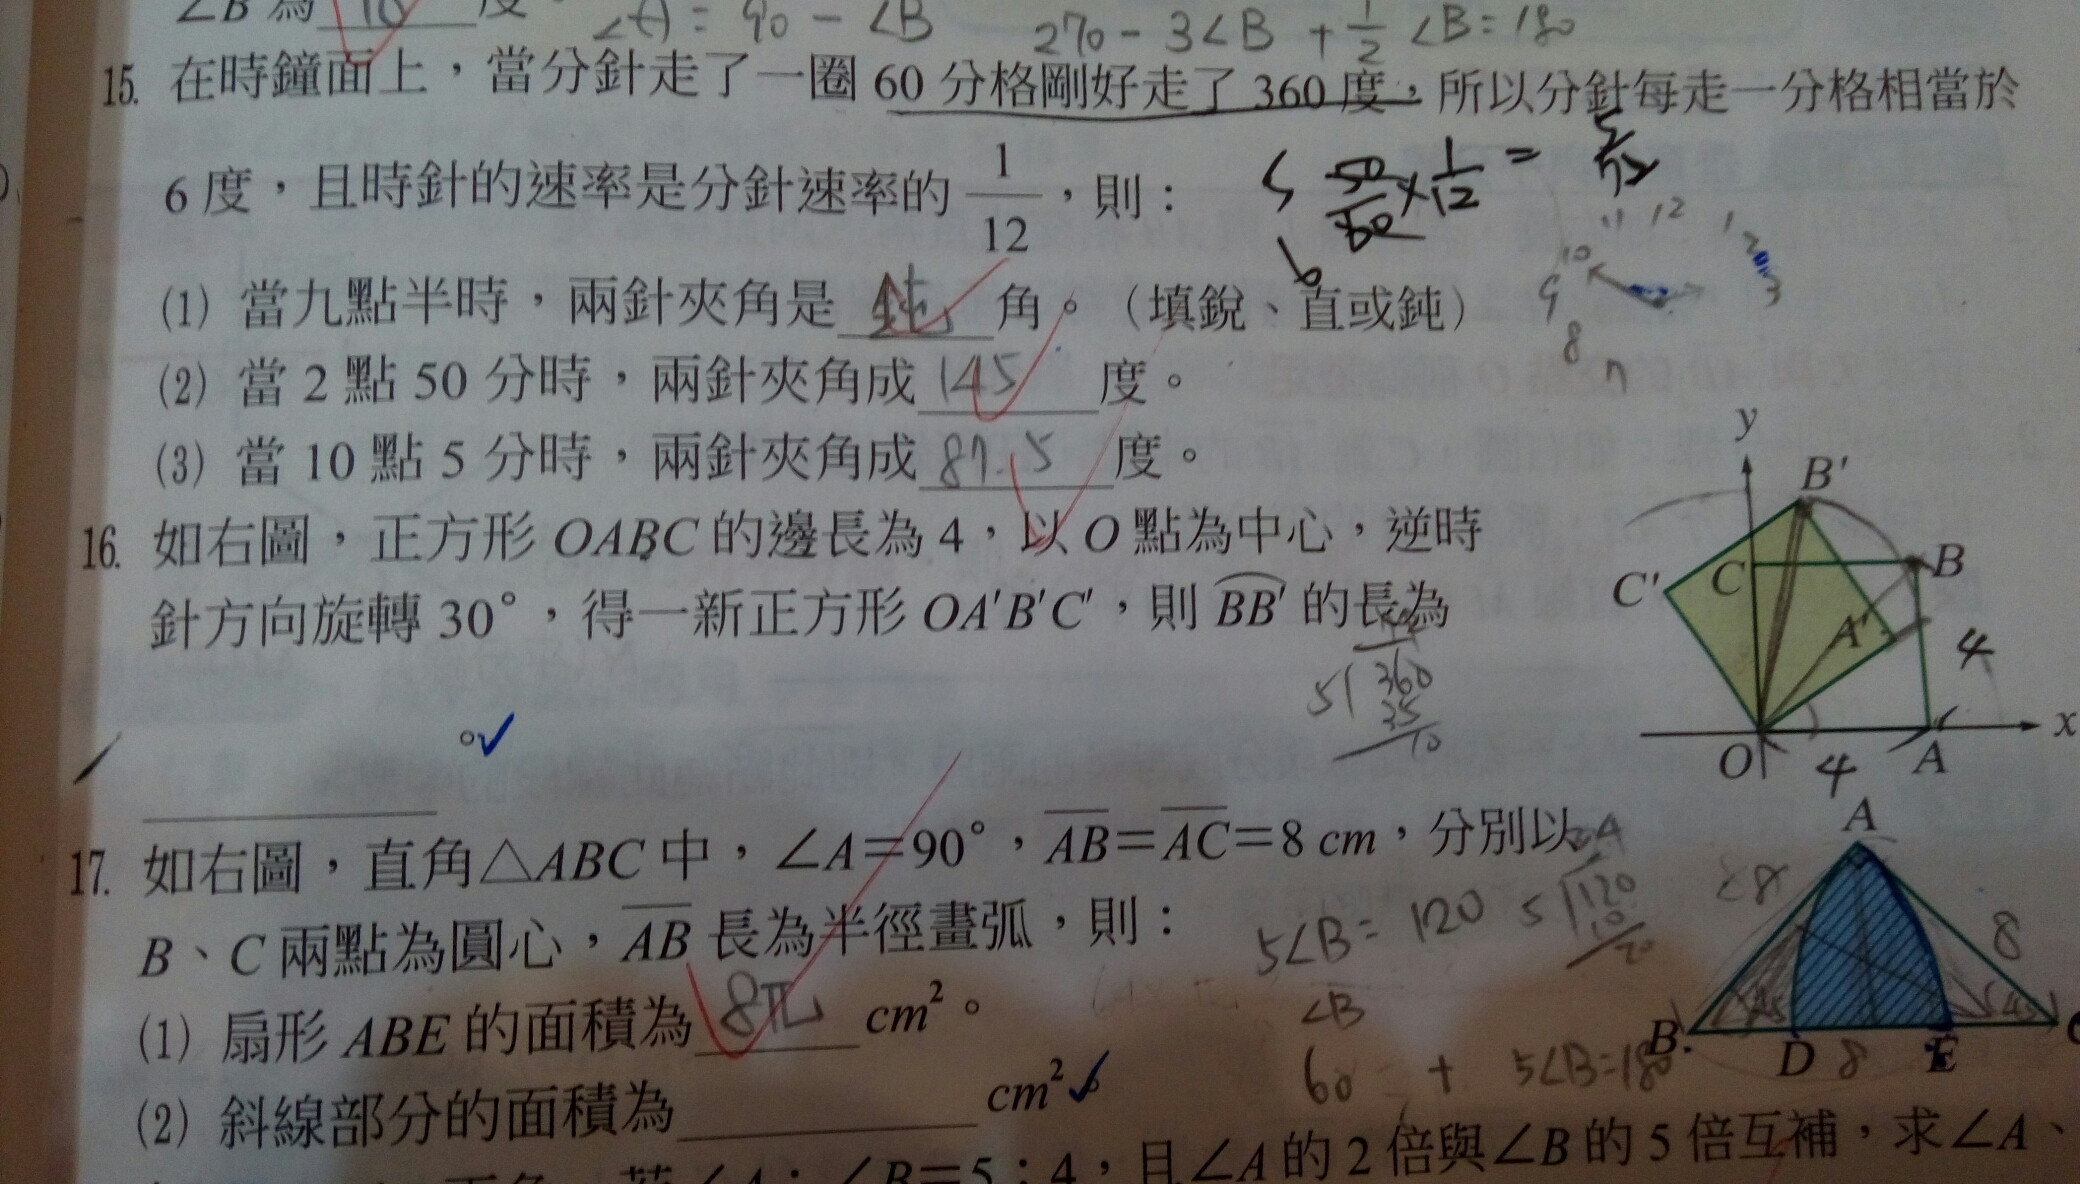 ∠B 為 10 度。 ∠A = 90 - ∠B 270 - 3∠B + 1/2 ∠B = 180
15. 在時鐘面上，當分針走了一圈 60 分格剛好走了 360 度，所以分針每走一分格相當於
6 度，且時針的速率是分針速率的 1/12，則：
50/60 × 1/12 = 5/72
11 12 1
10 2
9 3
8
7
(1) 當九點半時，兩針夾角是 鈍 角。（填銳、直或鈍）
(2) 當 2 點 50 分時，兩針夾角成 145 度。
(3) 當 10 點 5 分時，兩針夾角成 87.5 度。
16. 如右圖，正方形 OABC 的邊長為 4，以 O 點為中心，逆時
針方向旋轉 30°，得一新正方形 OA'B'C'，則 BB' 的長為
。
5 360
35
10
y
B'
C' C B
A' 4
O 4 A x
17. 如右圖，直角△ABC 中，∠A＝90°，AB＝AC＝8 cm，分別以
B、C 兩點為圓心，AB 長為半徑畫弧，則：
5∠B = 120 5 120
10
20
∠B
60 + 5∠B=180
(1) 扇形 ABE 的面積為 8π cm²。
(2) 斜線部分的面積為 cm²。
A
8
B D 8 E C
∠B＝5：4，且∠A 的 2 倍與∠B 的 5 倍互補，求∠A、